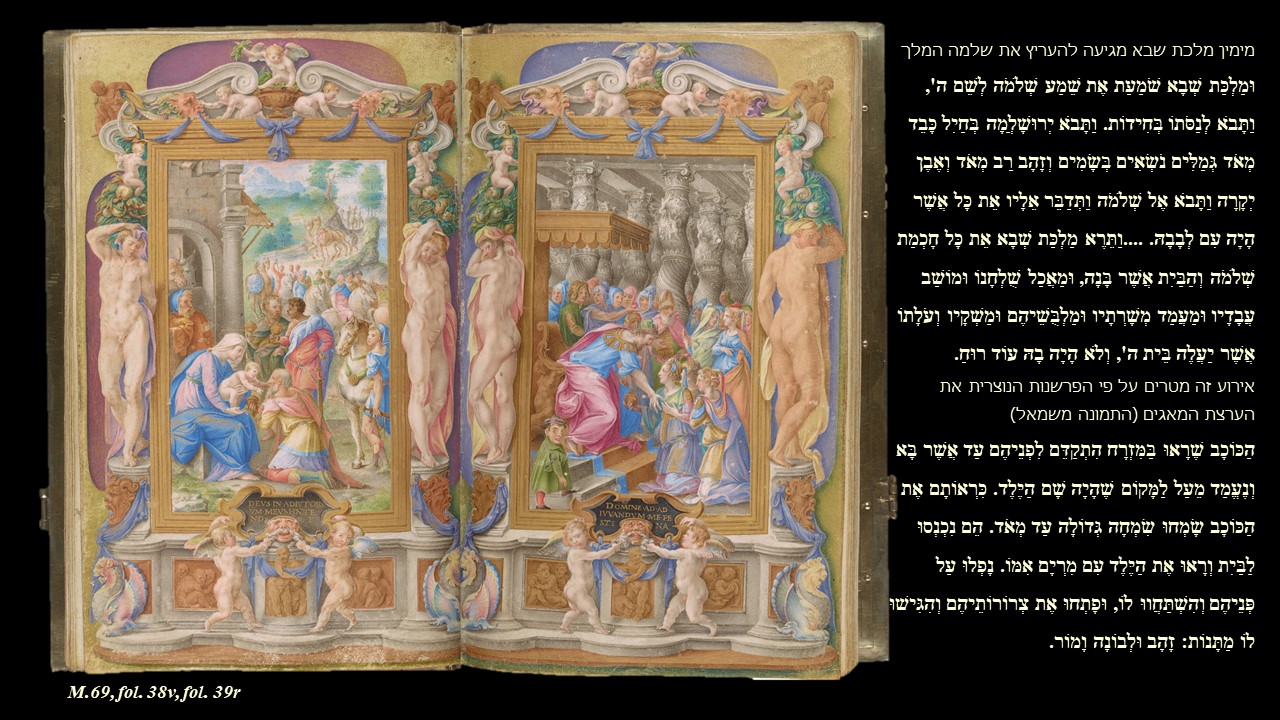 מימין מלכת שבא מגיעה להעריץ את שלמה המלך
וּמַלְכַּת שְׁבָא שֹׁמַעַת אֶת שֵׁמַע שְׁלֹמֹה לְשֵׁם ה',
וַתָּבֹא לְנַסֹּתוֹ בְּחִידוֹת. וַתָּבֹא יְרוּשָׁלְַמָה בְּחַיִל כָּבֵד
מְאֹד גְּמַלִּים נֹשְׂאִים בְּשָׂמִים וְזָהָב רַב מְאֹד וְאֶבֶן
יְקָרָה וַתָּבֹא אֶל שְׁלֹמֹה וַתְּדַבֵּר אֵלָיו אֵת כָּל אֲשֶׁר
הָיָה עִם לְבָבָהּ. ....וַתֵּרֶא מַלְכַּת שְׁבָא אֵת כָּל חָכְמַת
שְׁלֹמֹה וְהַבַּיִת אֲשֶׁר בָּנָה, וּמַאֲכַל שֻׁלְחָנוֹ וּמוֹשַׁב
עֲבָדָיו וּמַעֲמַד מְשָׁרְתָיו וּמַלְבֻּשֵׁיהֶם וּמַשְׁקָיו וְעֹלָתוֹ
אֲשֶׁר יַעֲלֶה בֵּית ה', וְלֹא הָיָה בָהּ עוֹד רוּחַ.
אירוע זה מטרים על פי הפרשנות הנוצרית את
הערצת המאגים (התמונה משמאל)
הַכּוֹכָב שֶׁרָאוּ בַּמִּזְרָח הִתְקַדֵּם לִפְנֵיהֶם עַד אֲשֶׁר בָּא
וְנֶעֱמַד מֵעַל לַמָּקוֹם שֶׁהָיָה שָׁם הַיֶּלֶד. כִּרְאוֹתָם אֶת
הַכּוֹכָב שָׂמְחוּ שִׂמְחָה גְּדוֹלָה עַד מְאֹד. הֵם נִכְנְסוּ
לַבַּיִת וְרָאוּ אֶת הַיֶּלֶד עִם מִרְיָם אִמּוֹ. נָפְלוּ עַל
פְּנֵיהֶם וְהִשְׁתַּחֲווּ לוֹ, וּפָתְחוּ אֶת צְרוֹרוֹתֵיהֶם וְהִגִּישׁוּ
לוֹ מַתָּנוֹת: זָהָב וּלְבוֹנָה וָמוֹר.
DEVS IN ADIVTORI
VM MEVM INTE
ND
DOMINE AD AD
IVVANDVM ME FE
STI NA
M.69, fol. 38v, fol. 39r